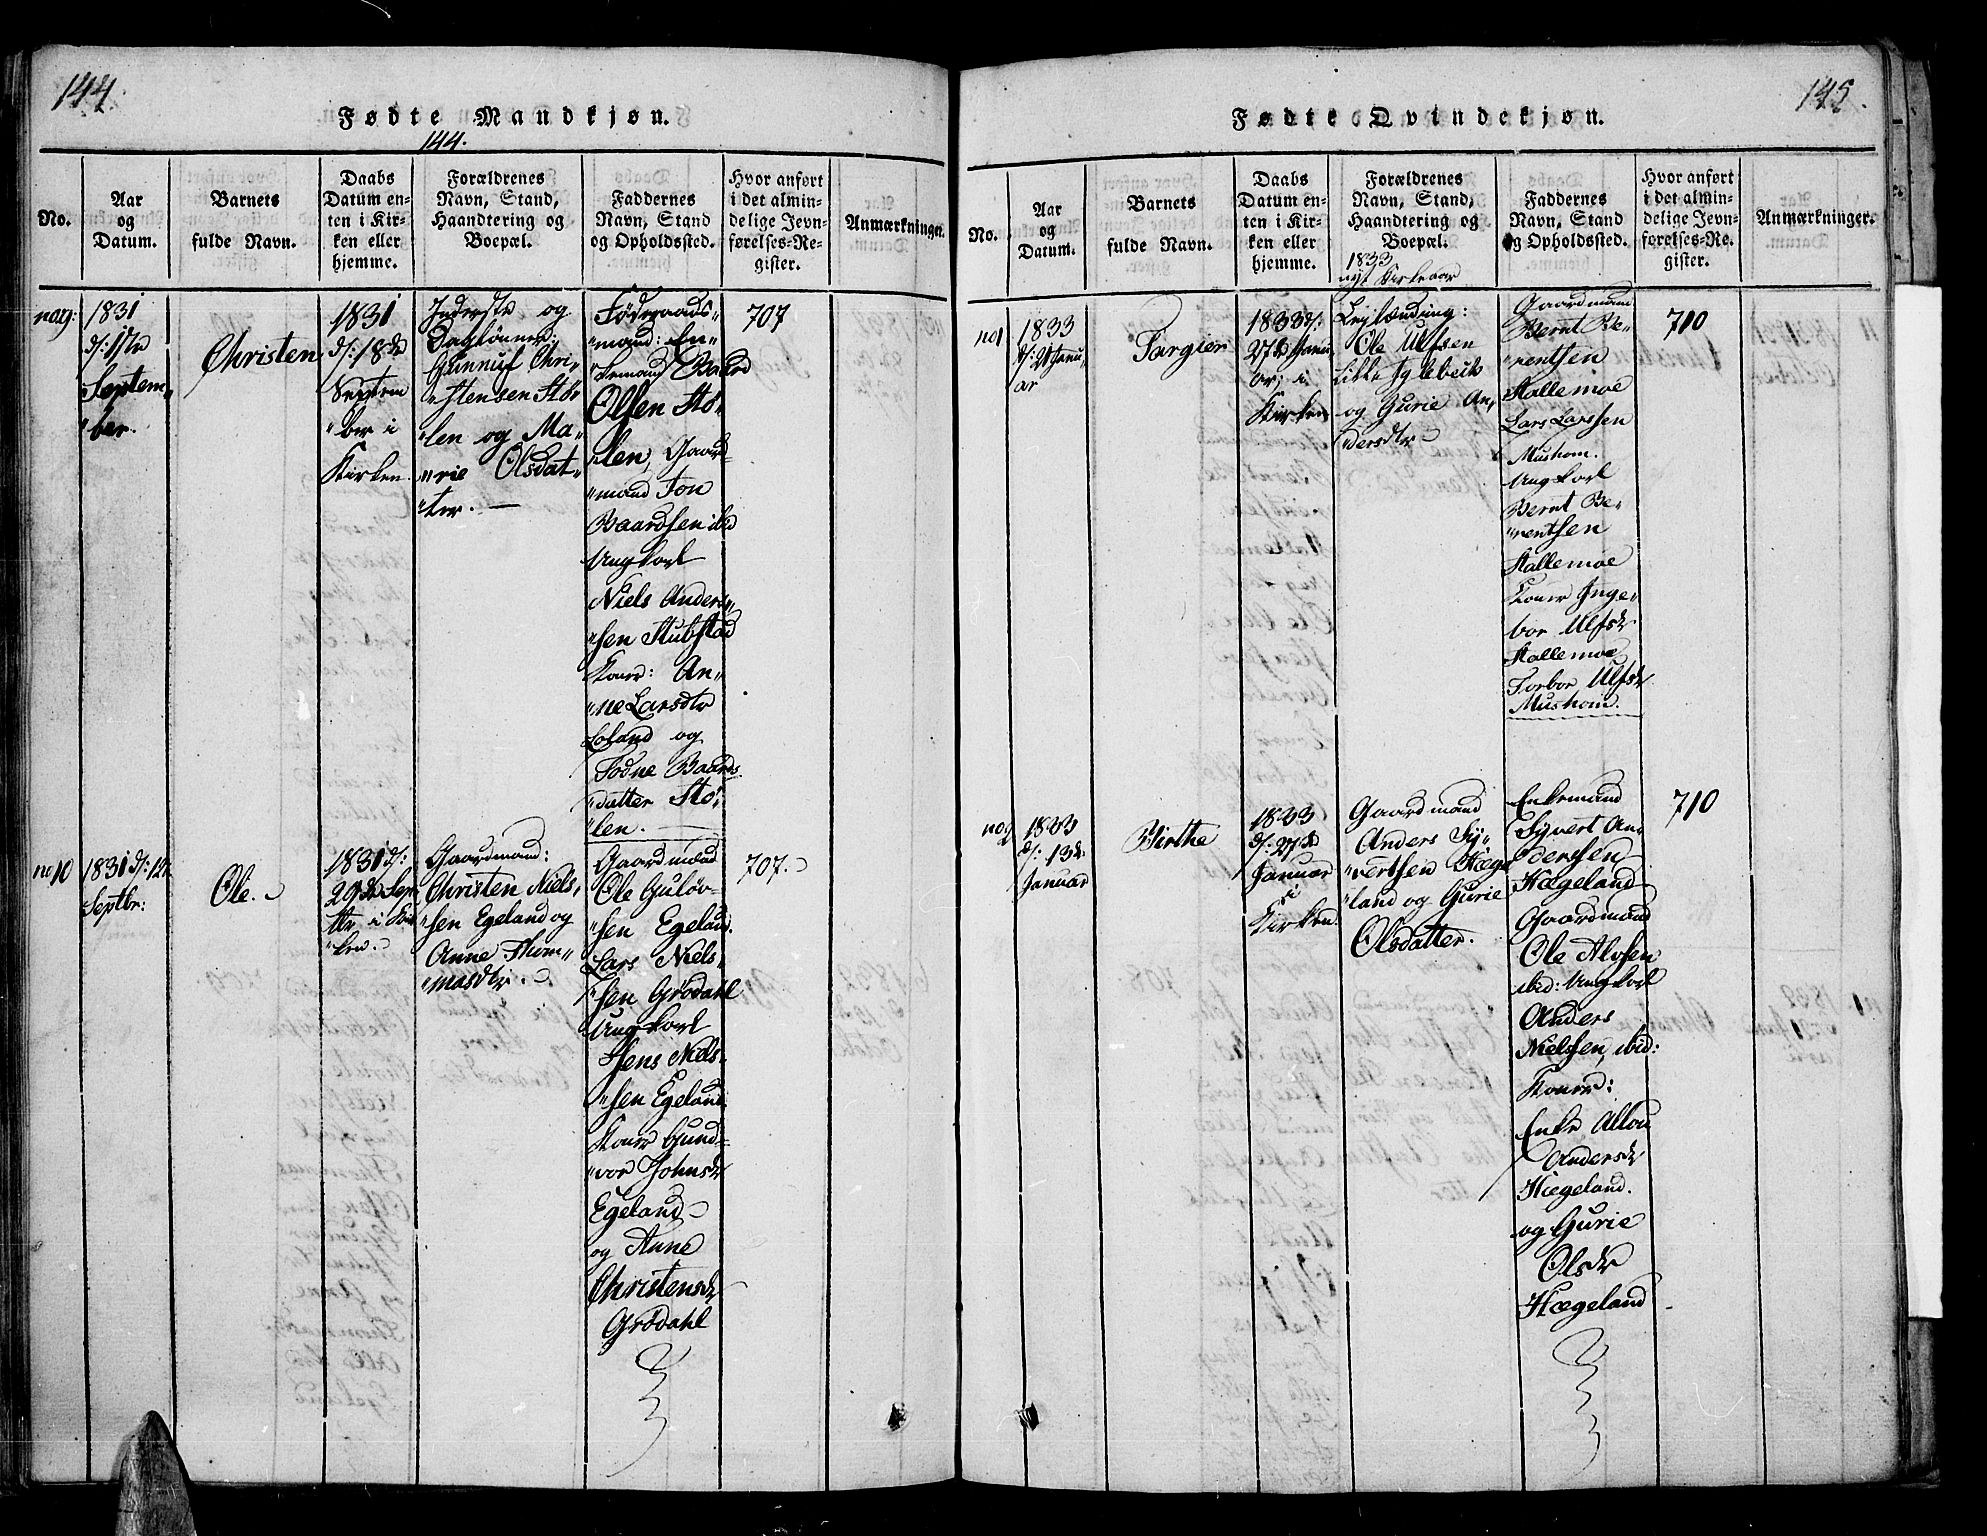 144.
Fødte Mandkjøn.
144.
No.
Aar
og
Datum.
Barnets
fulde Navn.
Daabs
Datum en-
ten i Kir-
ken eller
hjemme.
Forældrenes
Navn, Stand,
Haandtering og
Boepæl.
Faddernes
Navn, Stand
og Opholdssted.
Hvor anført
i det almin-
delige Jevn-
førelses-Re-
gister.
Anmærkninger.
no 9:
1831
d: 17de
Septem„
„ber.
Christen
1831
d: 18de
Septem
„ber i
Kirken.
Inderste og
Daglønner:
Gunnuf Chri„
„stensen Stö„
„len og Ma„
„rie Olsdat„
„ter.
Föderaads„
„mand: En„
„kemand Baard
Olsen Stö„
„len, Gaard„
„mand Jon
Baardsen ibd
Ungkarl
Niels Anders„
„sen Stubstad
Koner: An„
„ne Larsdtr
Loland og
Todne Baards„
„datter Stö„
„len.
707
no 10
1831 d: 12te
Septbr:
Ole.
1831 d:
20de Sept
„tbr i Kir
„ken.
Gaardmand:
Christen Niels„
„sen Egeland og
Anne Thom„
„masdtr.
Gaardmænd
Ole Gulöv„
„sen Egeland.
Lars Niels„
„sen Grödahl
Ungkarl
Jens Niels„
„sen Egeland
Koner Gund„
„vor Johnsdr
Egeland
og Anne
Christensdr
Grödahl
707.
145.
Fødte Qvindekjøn.
No.
Aar
og
Datum.
Barnets
fulde Navn.
Daabs
Datum en-
ten i Kir-
ken eller
hjemme.
Forældrenes
Navn, Stand,
Haandtering og
Boepæl.
1833
nyt Kirkeaar
Faddernes
Navn, Stand
og Opholdssted.
Hvor anført
i det almin-
delige Jevn-
førelses-Re-
gister.
Anmærkninger.
no 1
1833
d: 2 Janu„
ar
Targier
1833 d:
27de Janu
ar, i
Kirken
Leylænding:
Ole Ulfsen
Lille Iglebæk
og Gurie An„
„dersdtr
Gaardmænd
Bernt Be„
„rentsen
Hallemoe
Lars Larssen
Mushom.
Ungkarl
Bernt Be„
„rentsen
Hallemoe
Koner Inge„
bor Ulfsdr
Hallemoe
Torbor Ulfsdr
Mushom.
710
no 2
1833
d: 13de
Januar
Birthe
1833
d: 27de
Januar
i
Kirken.
Gaardmand
Anders Sy„
„vertsen Hæge
„land og Gurie
Olsdatter.
Enkemand
Syvert An„
„derssen
Hægeland
Gaardmand
Ole Alvsen
ibid: Ungkarl
Anders
Nielssen, ibid:
Koner:
Enke Allou
Andersdr
Hægeland.
og Gurie
Olsdr
Hægeland
710